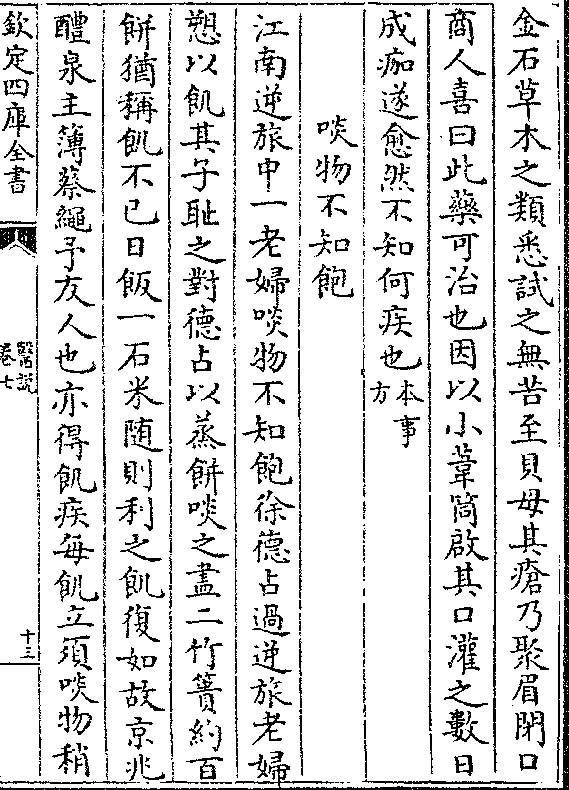 金石草木之類悉試之無苦至貝母其瘡乃聚眉閉口
商人喜曰此藥可治也因以小葦筒啟其口灌之數日
成痂遂愈然不知何疾也本事方
啖物不知飽
江南逆旅中一老婦啖物不知飽徐德占過逆旅老婦
愬以飢其子耻之對德占以蒸餅啖之盡二竹簣約百
餅猶稱飢不已日飯一石米随則利之飢復如故京兆
醴泉主簿蔡繩予友人也亦得飢疾每飢立須啖物稍
欽定四庫全書
醫説
卷七
十三